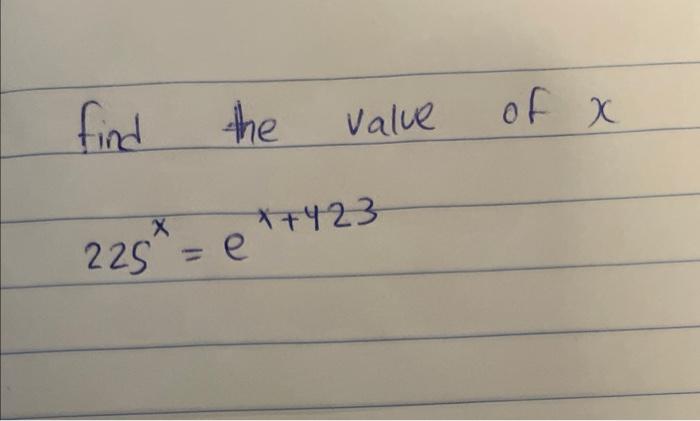 find the value of x
225^x = e^x+423